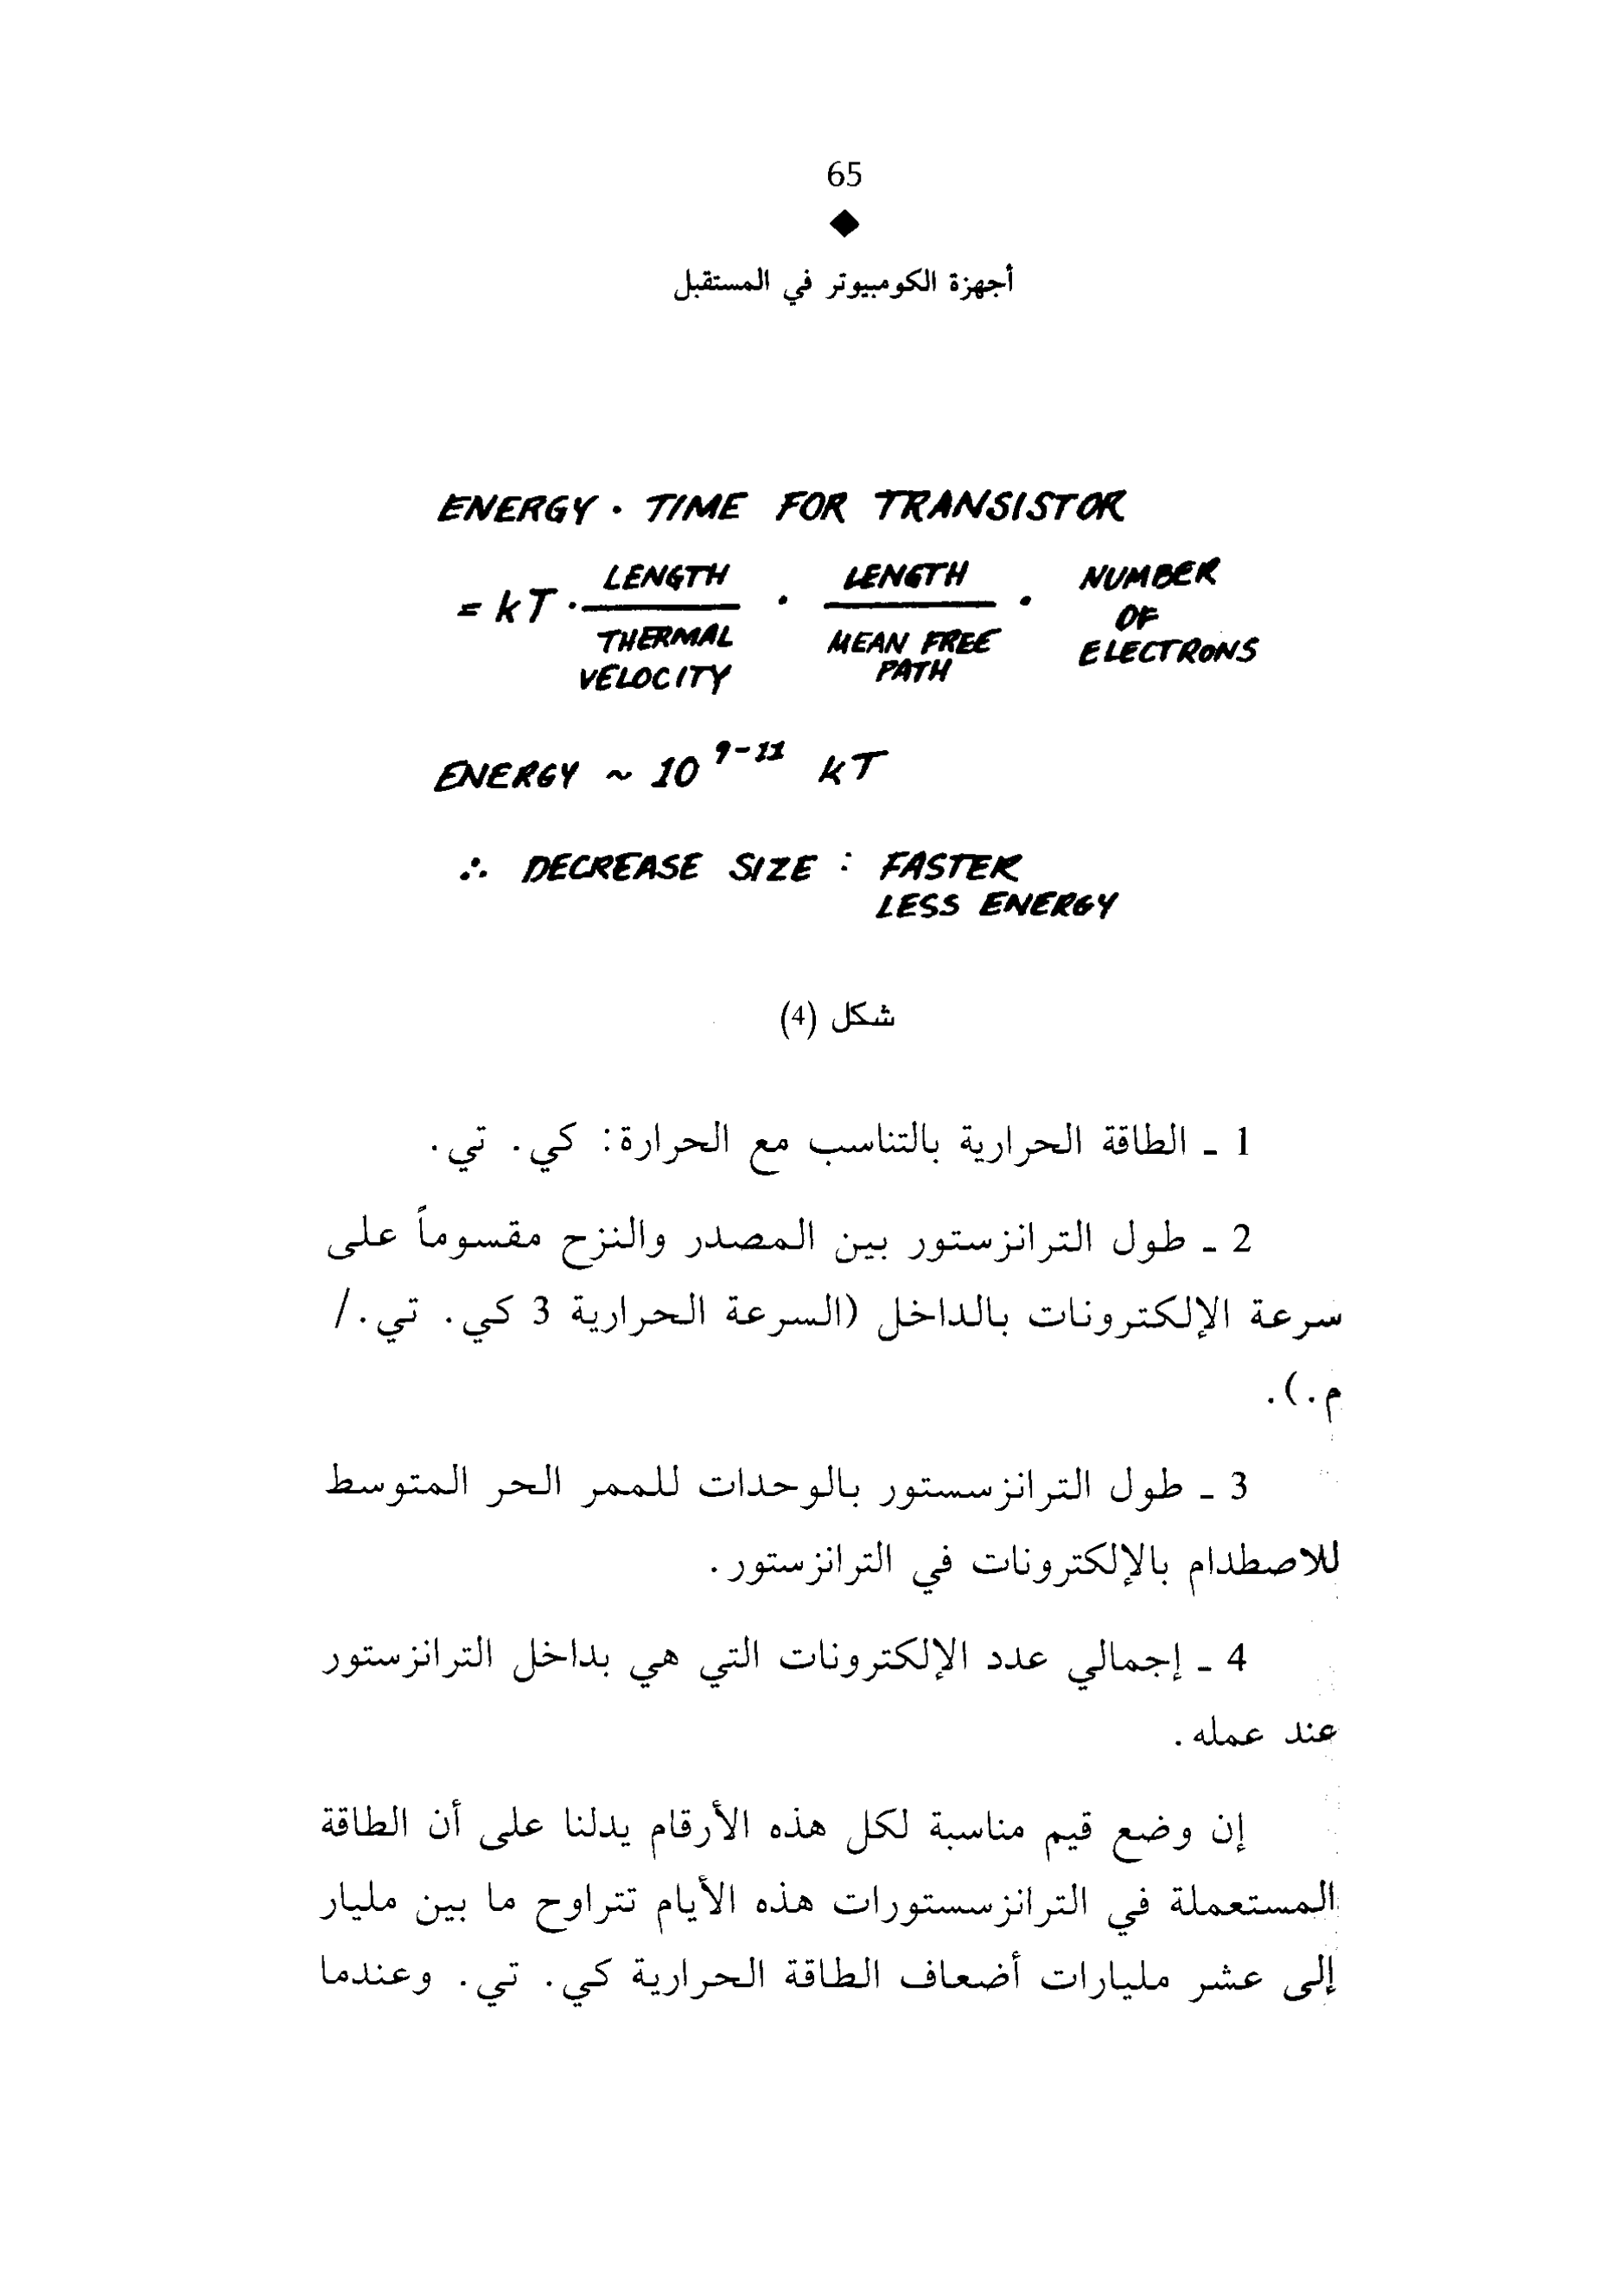 65
أجهزة الكومبيوتر في المستقبل
ENERGY · TIME FOR TRANSISTOR
= kT · LENGTH / THERMAL VELOCITY · LENGTH / MEAN FREE PATH · NUMBER OF ELECTRONS
ENERGY ~ 10^9-11 kT
∴ DECREASE SIZE : FASTER
LESS ENERGY
شكل (4)
1 ـ الطاقة الحرارية بالتناسب مع الحرارة: كي. تي.
2 ـ طول الترانزستور بين المصدر والنزح مقسوماً على
سرعة الإلكترونات بالداخل (السرعة الحرارية 3 كي. تي./
م.).
3 ـ طول الترانزسستور بالوحدات للممر الحر المتوسط
للاصطدام بالإلكترونات في الترانزستور.
4 ـ إجمالي عدد الإلكترونات التي هي بداخل الترانزستور
عند عمله.
إن وضع قيم مناسبة لكل هذه الأرقام يدلنا على أن الطاقة
المستعملة في الترانزسستورات هذه الأيام تتراوح ما بين مليار
إلى عشر مليارات أضعاف الطاقة الحرارية كي. تي. وعندما